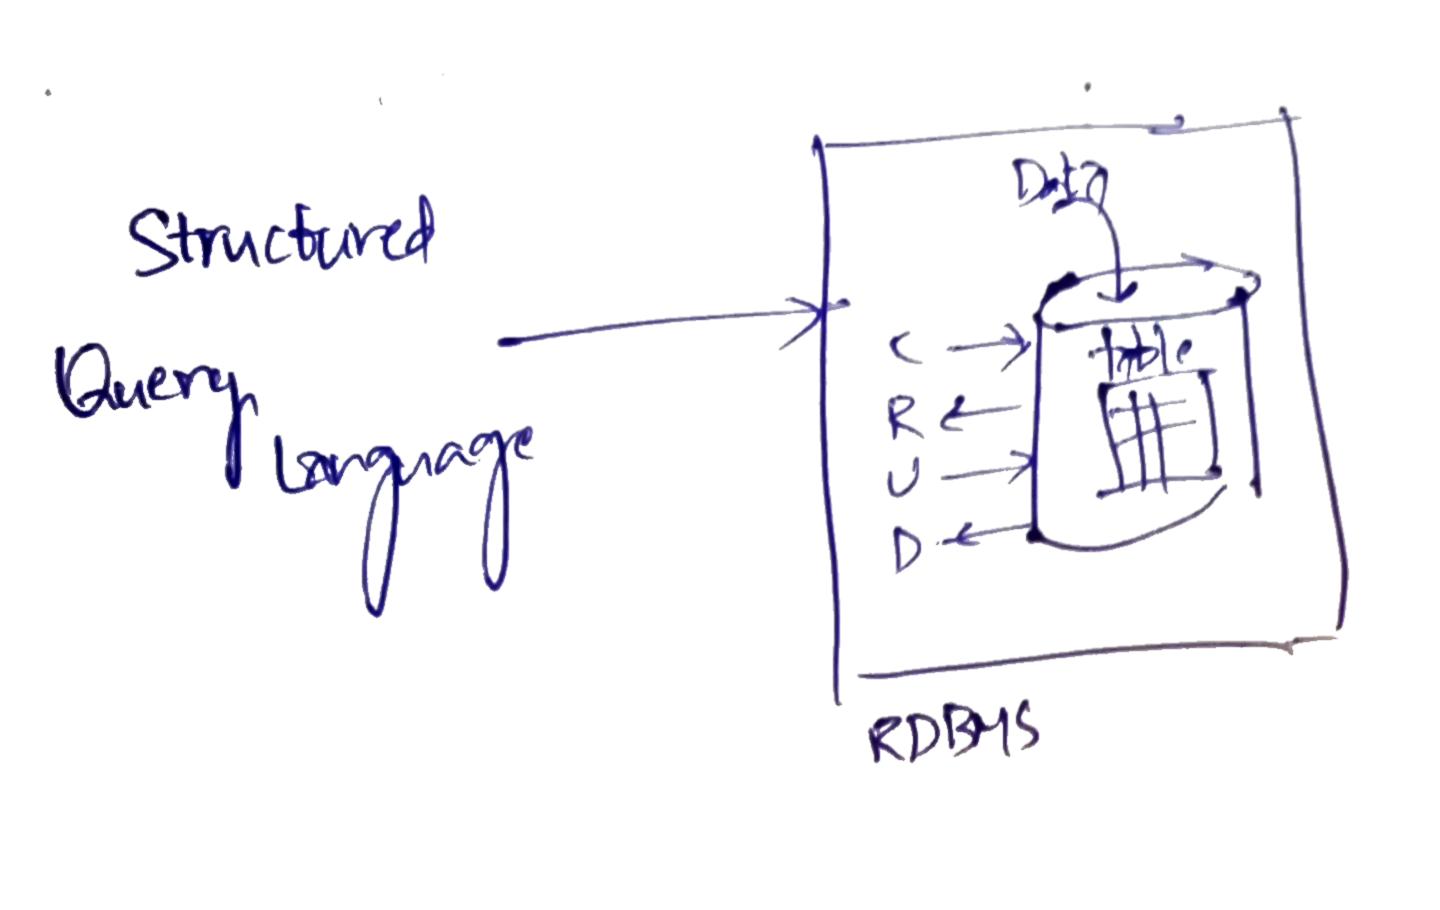 Structured
Query
Language
Data
table
C
R
U
D
RDBMS